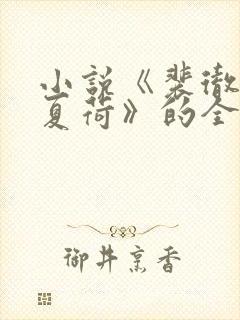 小说《裴徹
夏荷》的全
御井烹香